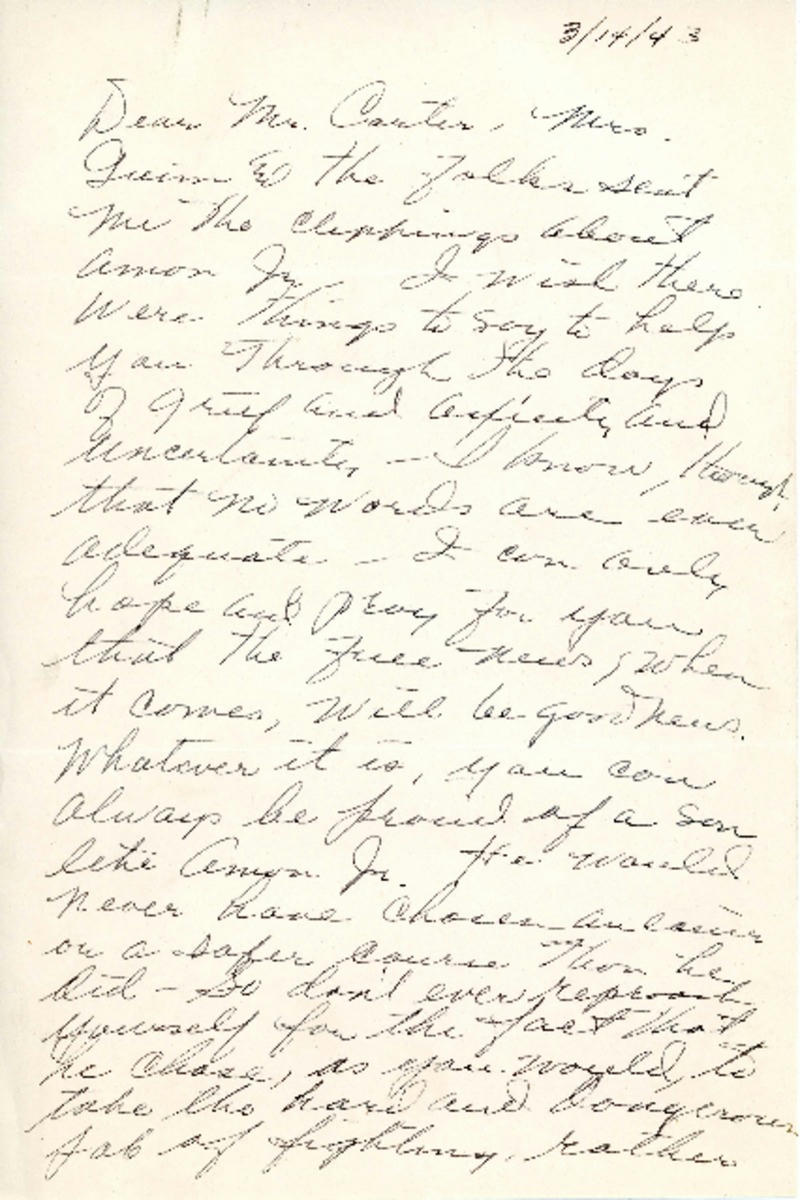 3/14/43
Dear Mr. Carter, Mrs.
Quinn & the folks sent
me the clippings about
Amon Jr. I wish there
were things to say to help
you through the days
of grief and and
uncertainty — I know, though,
that no words are ever
adequate — I can only
hope and pray for you
that the true news, when
it comes, will be good news.
Whatever it is, you can
always be proud of a son
like Amon Jr. He would
never have chosen an easier
or a safer course than he
did — So don't ever reproach
yourself for the fact that
he chose, as you would, to
take the hard and dangerous
job of fighting, rather